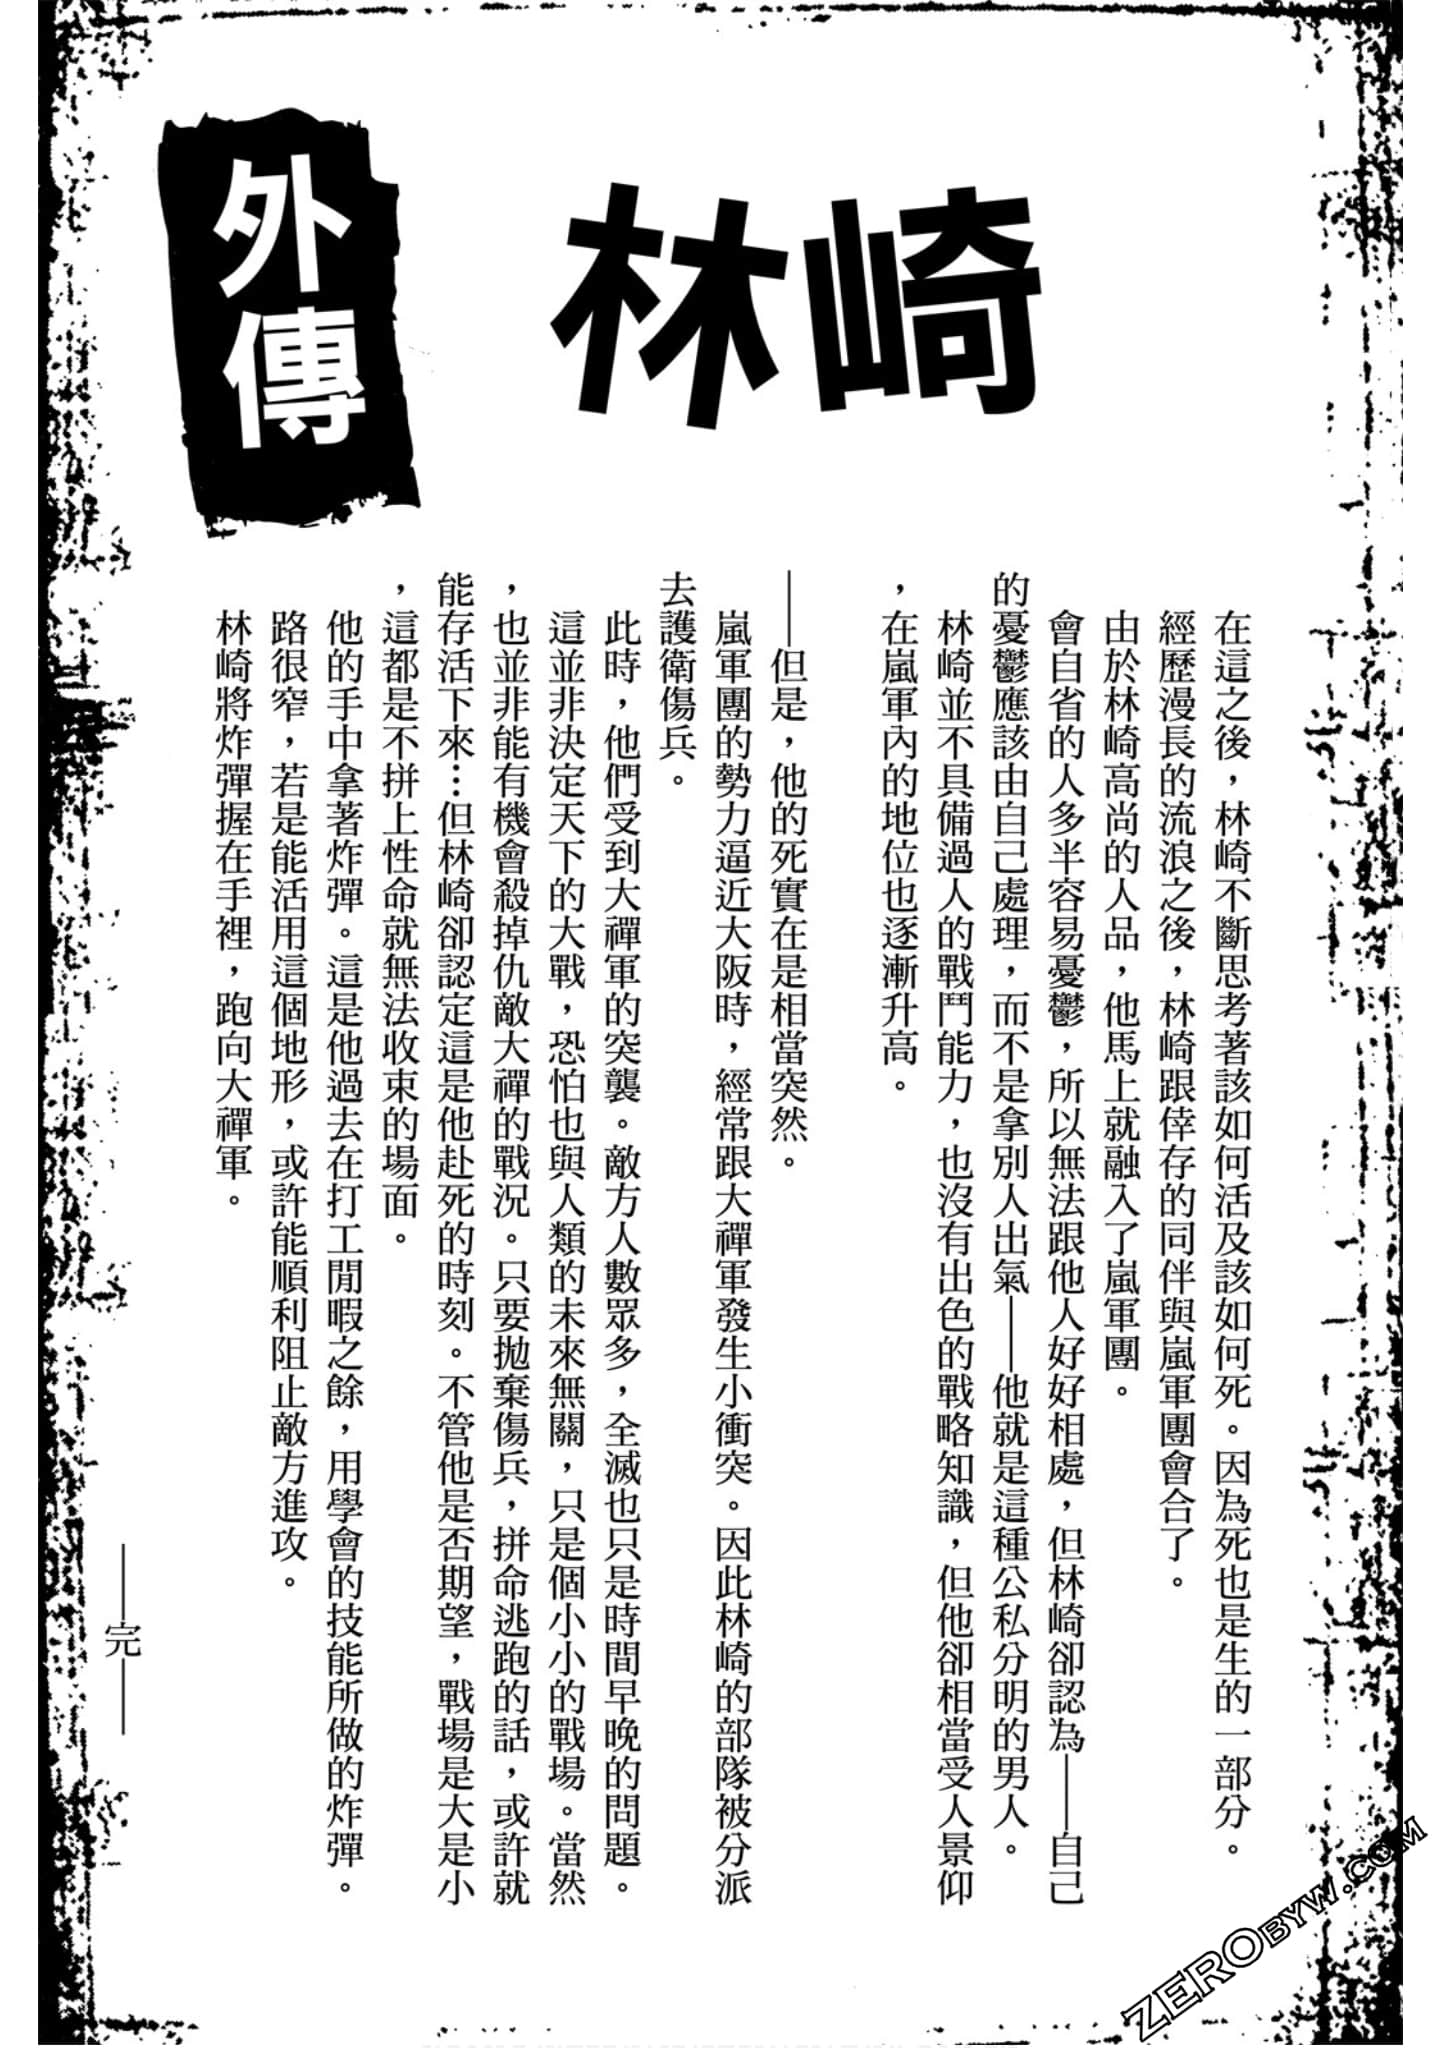 外傳
林崎
在這之後，林崎不斷思考著該如何活及該如何死。因為死也是生的一部分。
經歷漫長的流浪之後，林崎跟倖存的同伴與嵐軍團會合了。
由於林崎高尚的人品，他馬上就融入了嵐軍團。
會自省的人多半容易憂鬱，所以無法跟他人好好相處，但林崎卻認為——自己
的憂鬱應該由自己處理，而不是拿別人出氣——他就是這種公私分明的男人。
林崎並不具備過人的戰鬥能力，也沒有出色的戰略知識，但他卻相當受人景仰
，在嵐軍內的地位也逐漸升高。
——但是，他的死實在是相當突然。
嵐軍團的勢力逼近大阪時，經常跟大禪軍發生小衝突。因此林崎的部隊被分派
去護衛傷兵。
此時，他們受到大禪軍的突襲。敵方人數眾多，全滅也只是時間早晚的問題。
這並非決定天下的大戰，恐怕也與人類的未來無關，只是個小小的戰場。當然
，也並非能有機會殺掉仇敵大禪的戰況。只要拋棄傷兵，拼命逃跑的話，或許就
能存活下來…但林崎卻認定這是他赴死的時刻。不管他是否期望，戰場是大是小
，這都是不拼上性命就無法收束的場面。
他的手中拿著炸彈。這是他過去在打工閒暇之餘，用學會的技能所做的炸彈。
路很窄，若是能活用這個地形，或許能順利阻止敵方進攻。
林崎將炸彈握在手裡，跑向大禪軍。
——完——
ZEROBYW.COM